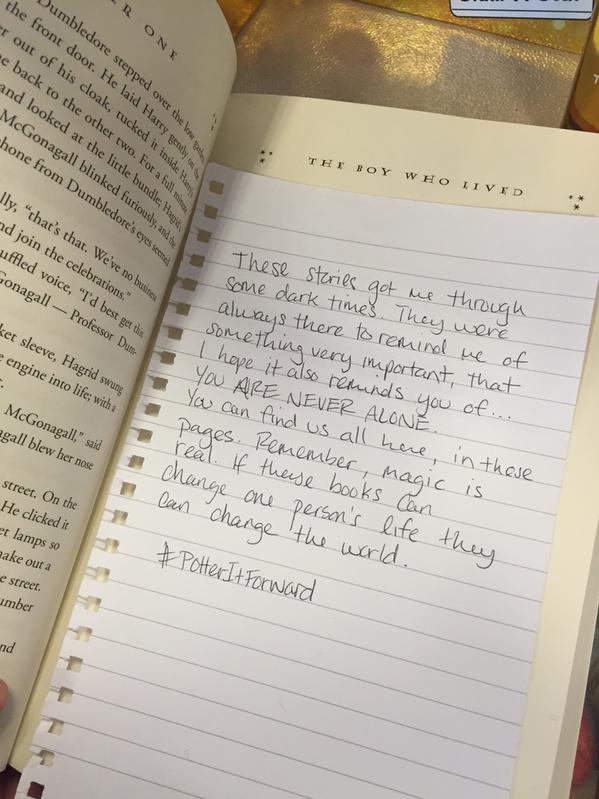 ER ONE
Dumbledore stepped over the low garden
the front door. He laid Harry gently on the
er out of his cloak, tucked it inside Harry's
e back to the other two. For a full minute
and looked at the little bundle; Hagrid's
McGonagall blinked furiously, and the
shone from Dumbledore's eyes seemed
lly, "that's that. We've no business
nd join the celebrations."
uffled voice, "I'd best get this
Gonagall — Professor Dum-
ket sleeve, Hagrid swung
e engine into life; with a
r.
McGonagall," said
agall blew her nose
street. On the
He clicked it
et lamps so
make out a
e street.
umber
nd
THE BOY WHO LIVED
These stories got me through
some dark times. They were
always there to remind me of
something very important, that
I hope it also reminds you of...
YOU ARE NEVER ALONE.
You can find us all here, in these
pages. Remember, magic is
real. If these books can
change one person's life they
can change the world.
#PotterItForward